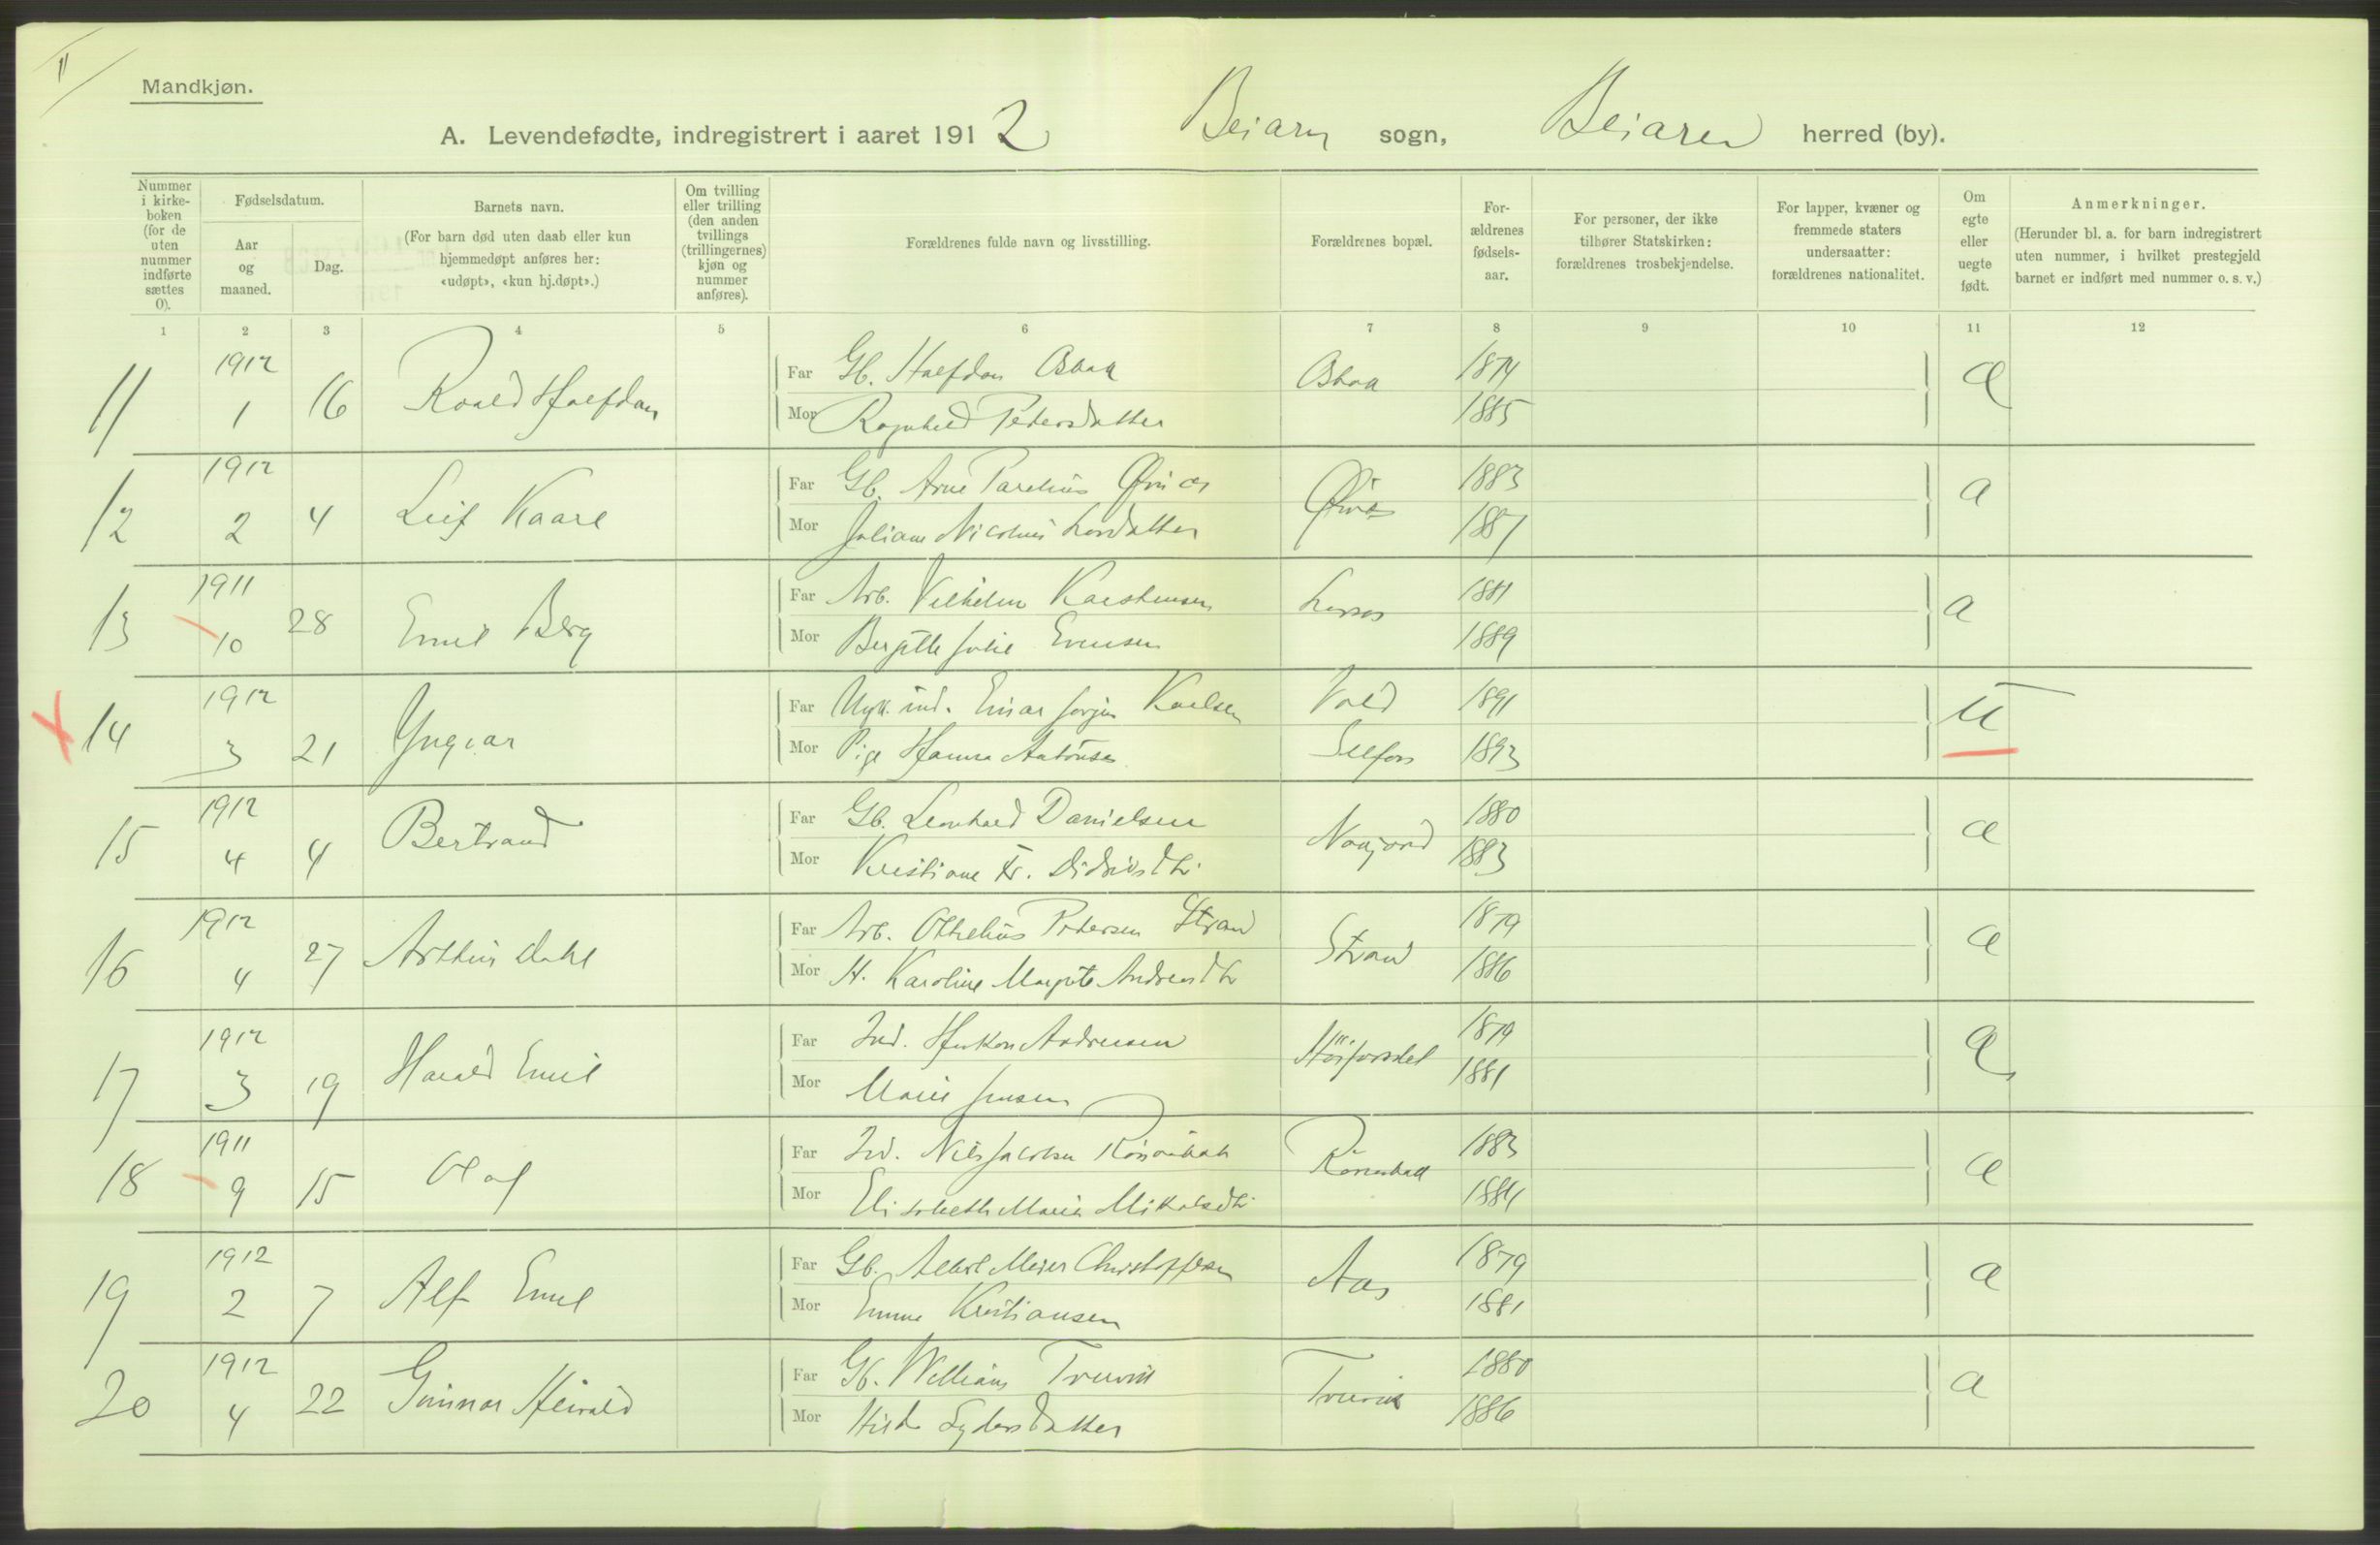 II
Mandkjøn.
A. Levendefødte, indregistrert i aaret 1912 Beiarn sogn, Beiaren herred (by).
Nummer i kirkeboken (for de uten nummer indførte sættes 0).
Fødselsdatum.
Aar og maaned.
Dag.
Barnets navn.
(For barn død uten daab eller kun hjemmedøpt anføres her: «udøpt», «kun hj.døpt».)
Om tvilling eller trilling (den anden tvillings (trillingernes) kjøn og nummer anføres).
Forældrenes fulde navn og livsstilling.
Forældrenes bopæl.
Forældrenes fødselsaar.
For personer, der ikke tilhører Statskirken: forældrenes trosbekjendelse.
For lapper, kvæner og fremmede staters undersaatter: forældrenes nationalitet.
Om egte eller uegte født.
Anmerkninger.
(Herunder bl. a. for barn indregistrert uten nummer, i hvilket prestegjeld barnet er indført med nummer o. s. v.)
1 2 3 4 5 6 7 8 9 10 11 12
11 1912 1 16 Roald Halfdan
Far Gb. Halfdan Osbak Osbak 1874 a
Mor Ragnhild Petersdatter 1885
12 1912 2 4 Leif Kaare
Far Gb. Arne Parelius 1883 a
Mor Juliane Larsdatter 1887
13 1911 10 28 Emil Berg
Far Arb. Vilhelm Karstensen 1881 a
Mor Bergitte Julie Evensen 1889
14 1912 3 21 Yngvar
Far Ugk. ind. Einar Jørgen Karlsen Vold 1891 u
Mor Pige Hanna Antonsen Selfors 1893
15 1912 4 4 Bertrand
Far Gb. Leonhard Danielsen 1880 a
Mor Kristiane Fr. Didriksdtr. Navjord 1883
16 1912 4 27 Arthur Dahl
Far Arb. Othelius Petersen Strand Strand 1879 a
Mor H. Karoline Margrete Andreasdtr 1886
17 1912 3 19 Harald Emil
Far Ind. Haakon Andreasen 1879 a
Mor Marie Jensen 1881
18 1911 9 15 Olaf
Far Ind. Nils Jacobsen 1883 a
Mor Elisabeth Marie Mikalsdtr 1884
19 1912 2 7 Alf Emil
Far Gb. Albert Meier Christoffersen Aas 1879 a
Mor Emma Kristiansen 1881
20 1912 4 22 Gunnar Heirald
Far Gb. William Truvik Truvik 1880 a
Mor Lydersdatter 1886